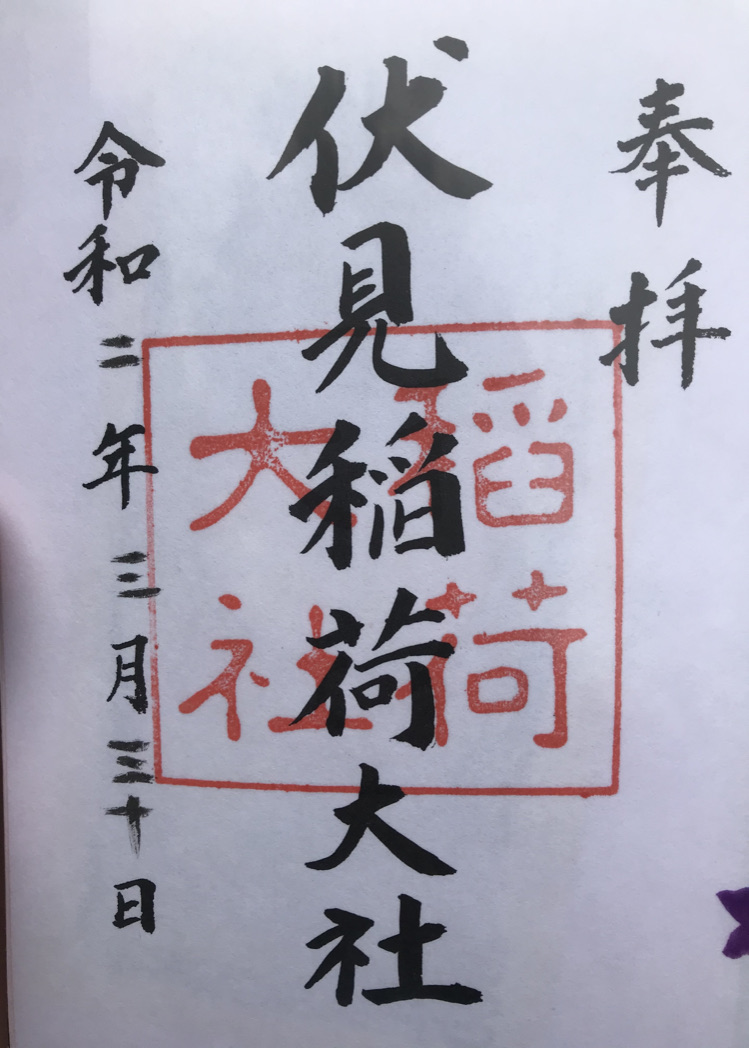 奉拝
伏見稲荷大社
稲荷
大社
令和二年三月三十日